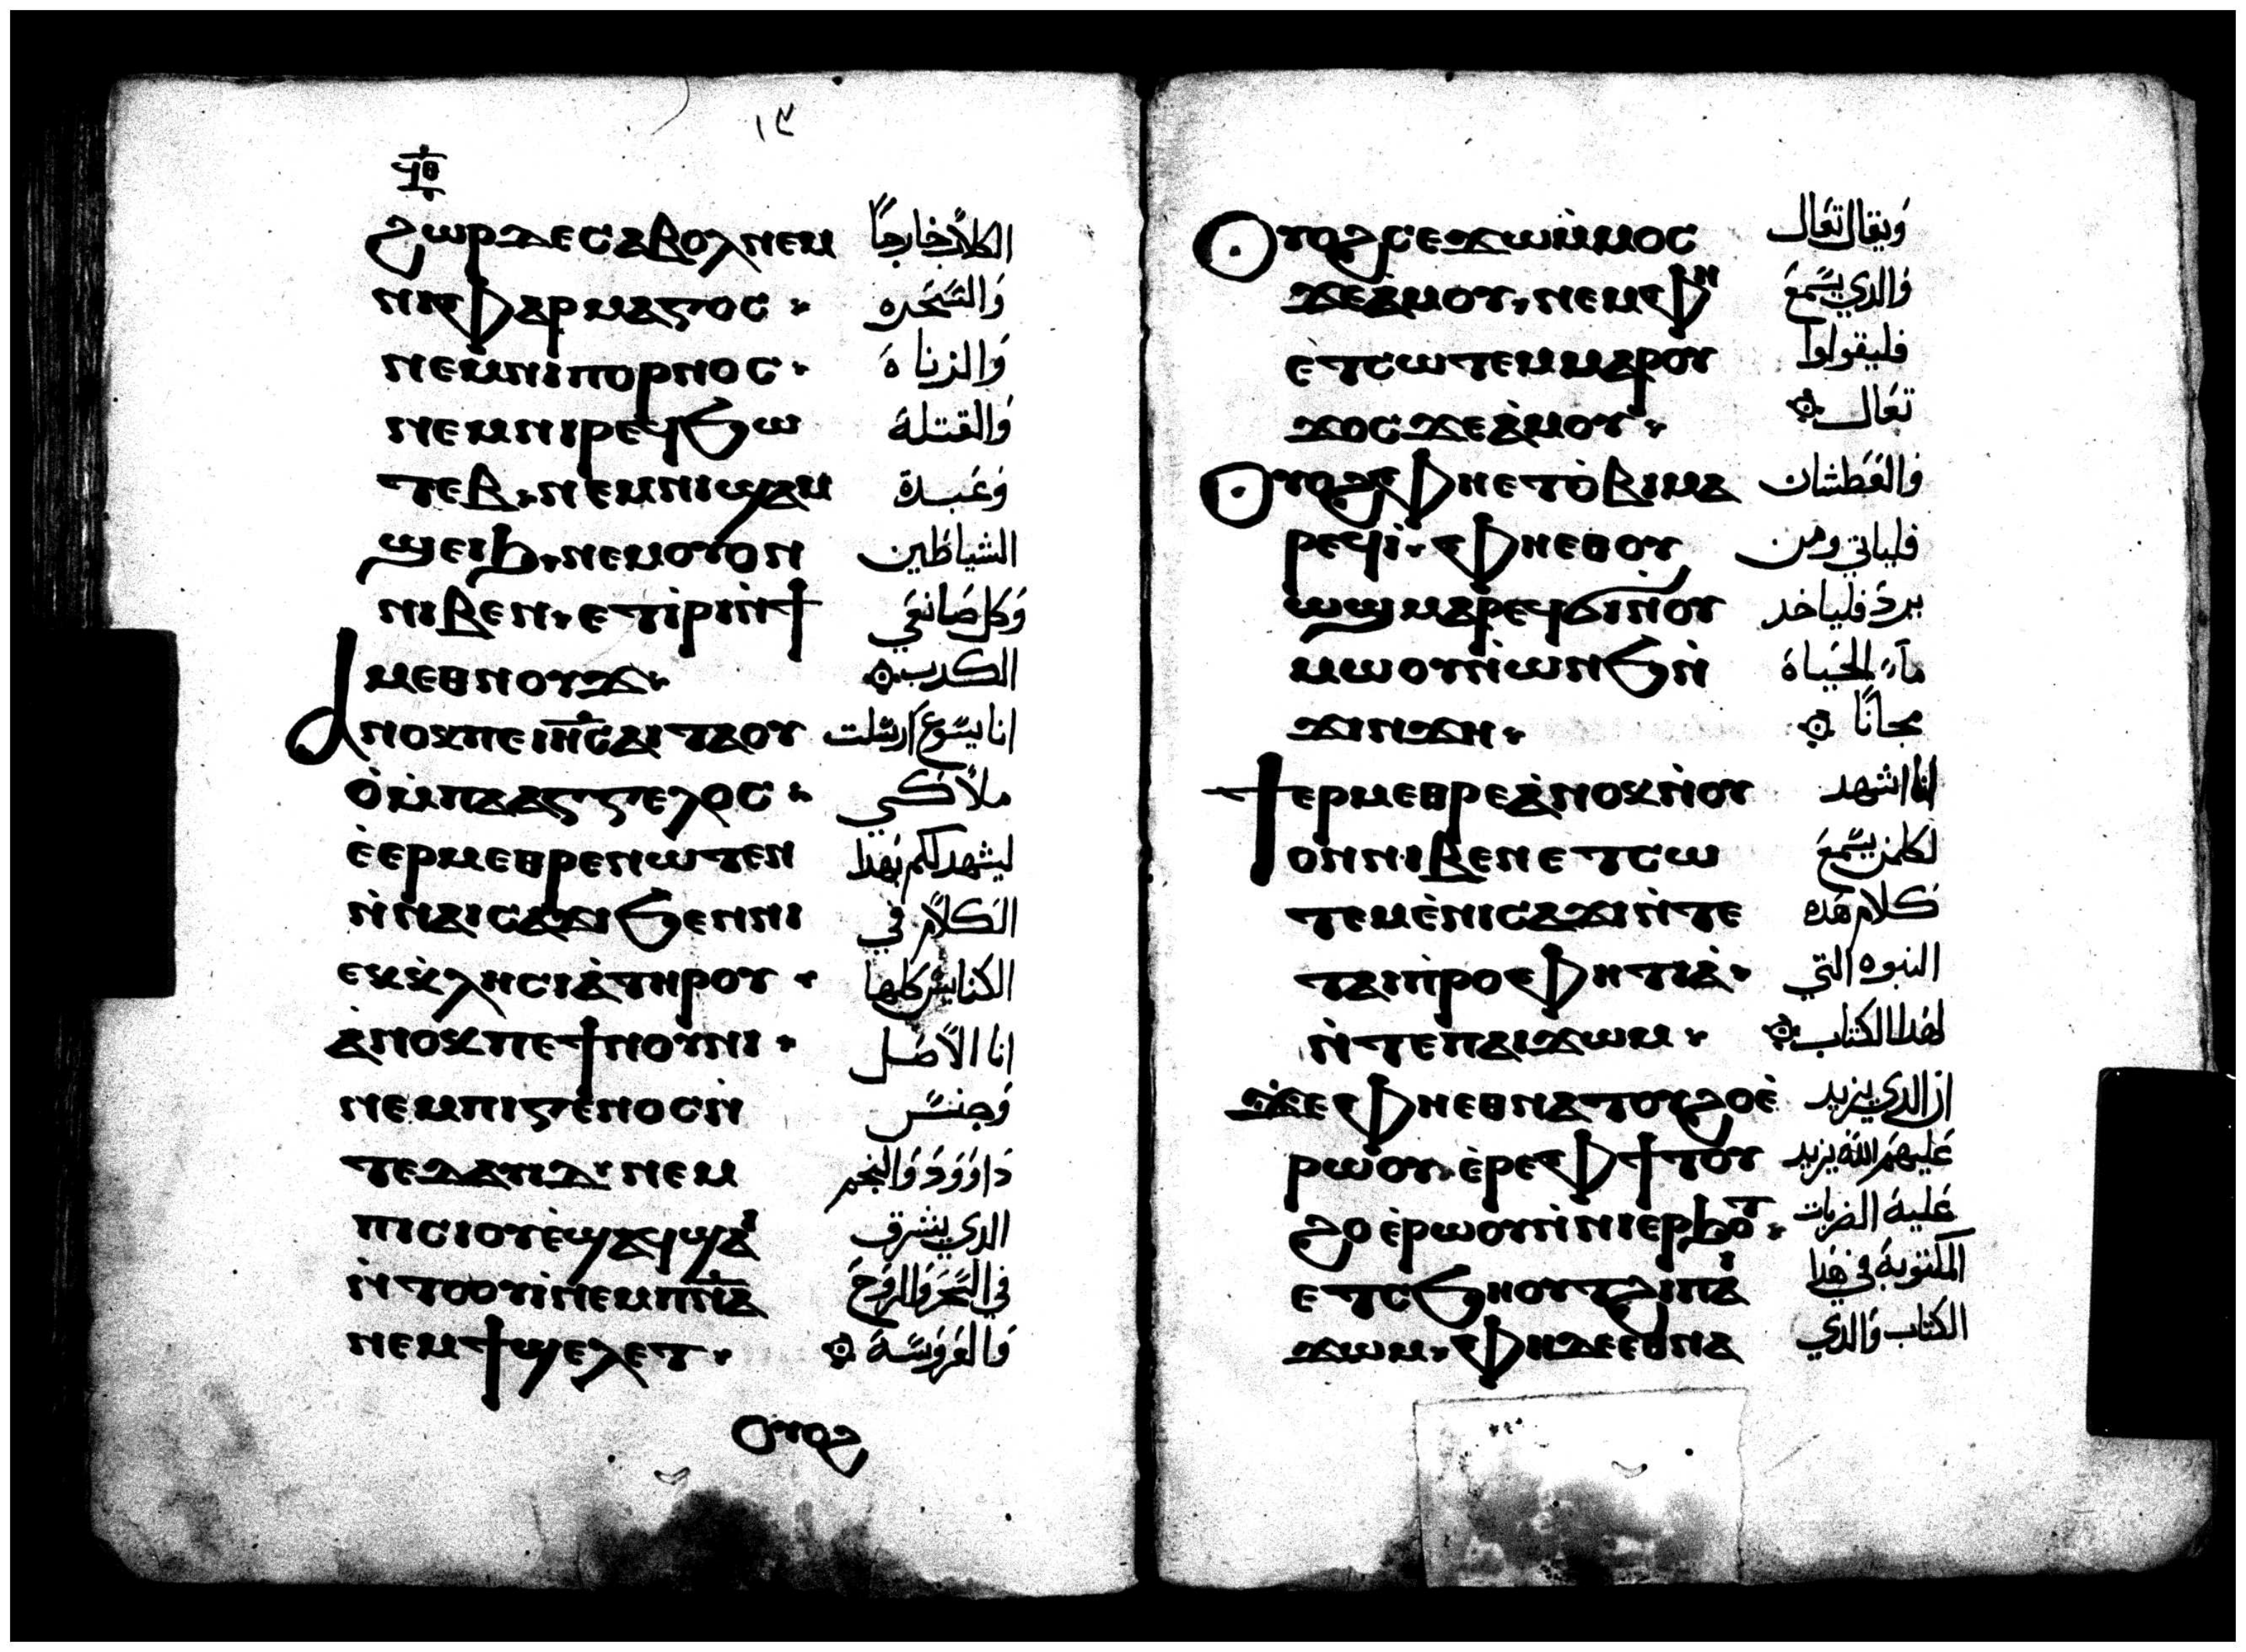 ١٣
ϥⲑ
ϩⲱⲣ ⲇⲉ ⲥⲁⲃⲟⲗ ⲛⲉⲙ الكلاب خارجًا
ⲛⲓⲫⲁⲣⲙⲁⲅⲟⲥ· والسحره
ⲛⲉⲙ ⲛⲓⲡⲟⲣⲛⲟⲥ· والزناه
ⲛⲉⲙ ⲛⲓⲣⲉϥϧⲱ والقتلة
ⲧⲉⲃ· ⲛⲉⲙ ⲛⲓϣⲁⲙ وعبدة
ϣⲉⲓⲇ· ⲛⲉⲙ ⲟⲩⲟⲛ الشياطين
ⲛⲓⲃⲉⲛ· ⲉⲧⲓ̀ⲣⲓ ⲛ̀ϯ وكل صانعي
ⲙⲉⲑⲛⲟⲩϫ· الكدب
ⲁⲛⲟⲕ ⲡⲉ ⲓⲏ̅ⲥ̅ ⲁⲓⲧⲁⲟⲩ انا يسوع ارسلت
ⲟ̀ ⲙ̀ⲡⲁⲁⲅⲅⲉⲗⲟⲥ· ملاكي
ⲉ̀ⲉⲣⲙⲉⲑⲣⲉ ⲛⲱⲧⲉⲛ ليشهد لكم بهدا
ⲛ̀ⲛⲁⲓⲥⲁϫⲓ ϧⲉⲛ ⲛⲓ الكلام في
ⲉⲕⲕ̀ⲗⲏⲥⲓⲁ̀ ⲧⲏⲣⲟⲩ· الكنايس كلها
ⲁ̀ⲛⲟⲕ ⲡⲉ ϯⲛⲟⲩⲛⲓ· انا الاصل
ⲛⲉⲙ ⲡⲓⲅⲉⲛⲟⲥ ⲛ̀ وجنس
ⲧⲉ ⲇⲁⲩⲓⲇ· ⲛⲉⲙ داوود والنجم
ⲡⲓⲥⲓⲟⲩ ⲉ̀ϣⲁϥϣⲁⲓ الدي يشرق
ⲛ̀ⲧⲟⲟⲩⲓ̀ ⲛⲉⲙ ⲡⲓⲡ̅ⲛ̅ⲁ̅ في السحر والروح
ⲛⲉⲙ ϯϣⲉⲗⲉⲧ· والعروسة
ⲟⲩⲟϩ
ⲟⲩⲟϩ ⲥⲉϫⲱ ⲙ̀ⲙⲟⲥ ويقال تعال
ϫⲉ ⲁ̀ⲙⲟⲩ· ⲛⲉⲙ ⲫⲏ والدي يسمع
ⲉⲧⲥⲱⲧⲉⲙ ⲙⲁⲣⲟⲩ فليقولوا
ϫⲟⲥ ϫⲉ ⲁ̀ⲙⲟⲩ· تعال
ⲟⲩⲟϩ ⲫⲏⲉⲧⲟ̀ⲃⲓ ⲙⲁ والعطشان
ⲣⲉϥⲓ̀· ⲫⲏⲉⲑⲟⲩ فلياتي ومن
ⲱϣ ⲙⲁⲣⲉϥϭⲓ ⲛ̀ⲟⲩ يرد فلياخد
ⲙⲱⲟⲩ ⲛ̀ⲱⲛϧ ⲛ̀ ماء الحياة
ϫⲓⲛϫⲏ· مجانًا
ϯⲉⲣⲙⲉⲑⲣⲉ ⲁ̀ⲛⲟⲕ ⲛ̀ⲟⲩ انا اشهد
ⲟⲛ ⲛⲓⲃⲉⲛ ⲉⲧⲥⲱ لكلمن يسمع
ⲧⲉⲙ ⲉ̀ⲛⲓⲥⲁϫⲓ ⲛ̀ⲧⲉ كلام هده
ⲧⲁⲓⲡ̀ⲣⲟⲫⲏⲧⲓⲁ̀· النبوه التي
ⲛ̀ⲧⲉ ⲡⲁⲓϫⲱⲙ· لهدا الكتاب
ϫⲉ ⲫⲏⲉⲑⲛⲁⲧⲟⲩϩⲟ ⲉ̀ ان الدي يزيد
ⲣⲱⲟⲩ· ⲉ̀ⲣⲉ ⲫϯ ⲧⲟⲩ عليهم الله يزيد
ϩⲟ ⲉ̀ⲣⲱⲟⲩ ⲛ̀ⲛⲓⲉⲣϧⲟⲧ· عليه الضربات
ⲉⲧⲥϧⲏⲟⲩⲧ ϩⲓ ⲡⲁⲓ المكتوبة في هدا
ϫⲱⲙ· ⲫⲏ ⲇⲉ ⲉⲑⲛⲁ الكتاب والدي